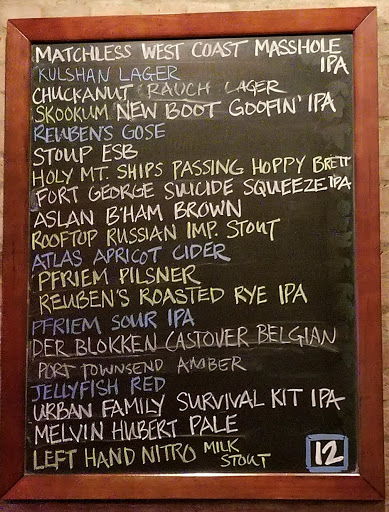 MATCHLESS WEST COAST MASSHOLE
IPA
KULSHAN LAGER
CHUCKANUT RAUCH LAGER
SKOOKUM NEW BOOT GOOFIN' IPA
REUBEN'S GOSE
STOUP ESB
HOLY MT. SHIPS PASSING HOPPY BRETT
FORT GEORGE SUICIDE SQUEEZE IPA
ASLAN B'HAM BROWN
ROOFTOP RUSSIAN IMP. STOUT
ATLAS APRICOT CIDER
PFRIEM PILSNER
REUBEN'S ROASTED RYE IPA
PFRIEM SOUR IPA
DER BLOKKEN CASTOVER BELGIAN
PORT TOWNSEND AMBER
JELLYFISH RED
URBAN FAMILY SURVIVAL KIT IPA
MELVIN HUBERT PALE
LEFT HAND NITRO MILK
STOUT
12